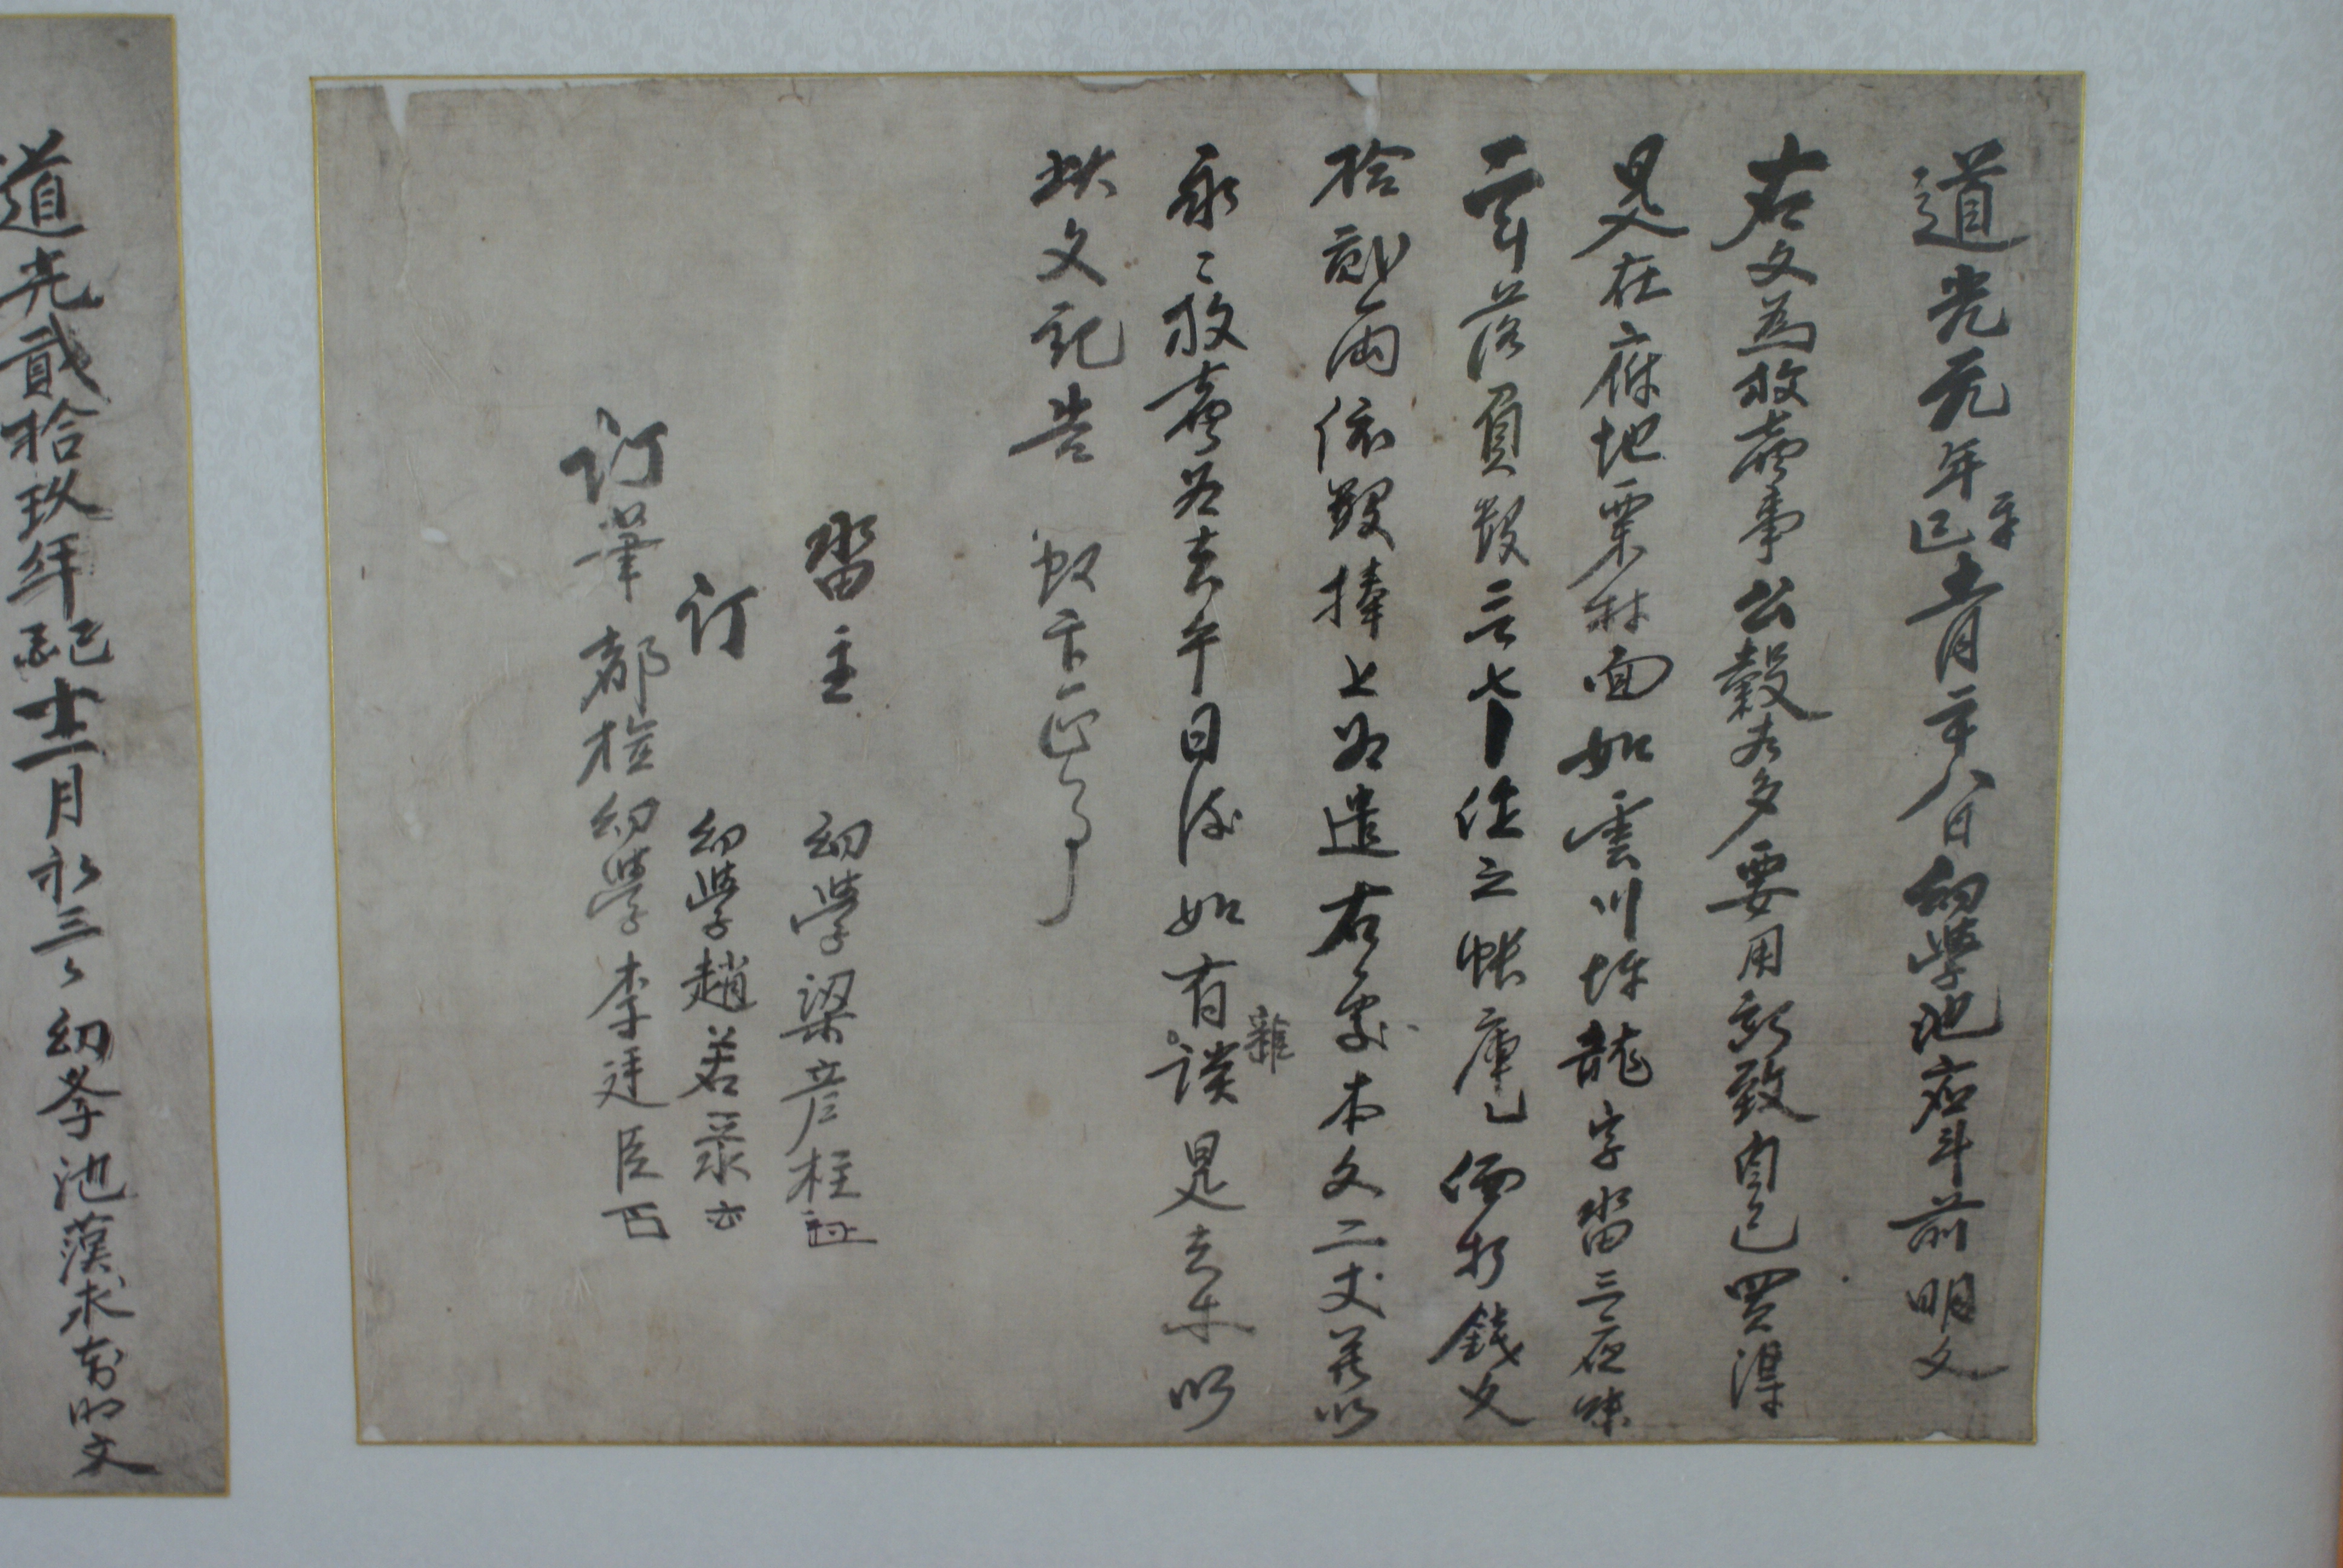 道光元年辛巳十二月二十八日幼學池應斗前明文
右文為放賣事公穀夫多要用所致自己買得
是在府地栗林面如雲川坪龍字畓三夜味
二斗落負數三七卜
拾貳兩依數捧上為遣右宅本文二丈並以
永々放賣為去乎日後如有雜談是去等以
此文記告
畓主 幼學梁彦柱
訂 幼學趙若
訂筆 都檢幼學李廷臣
道光貳拾玖年己酉十二月初三日幼學池漢求前明文